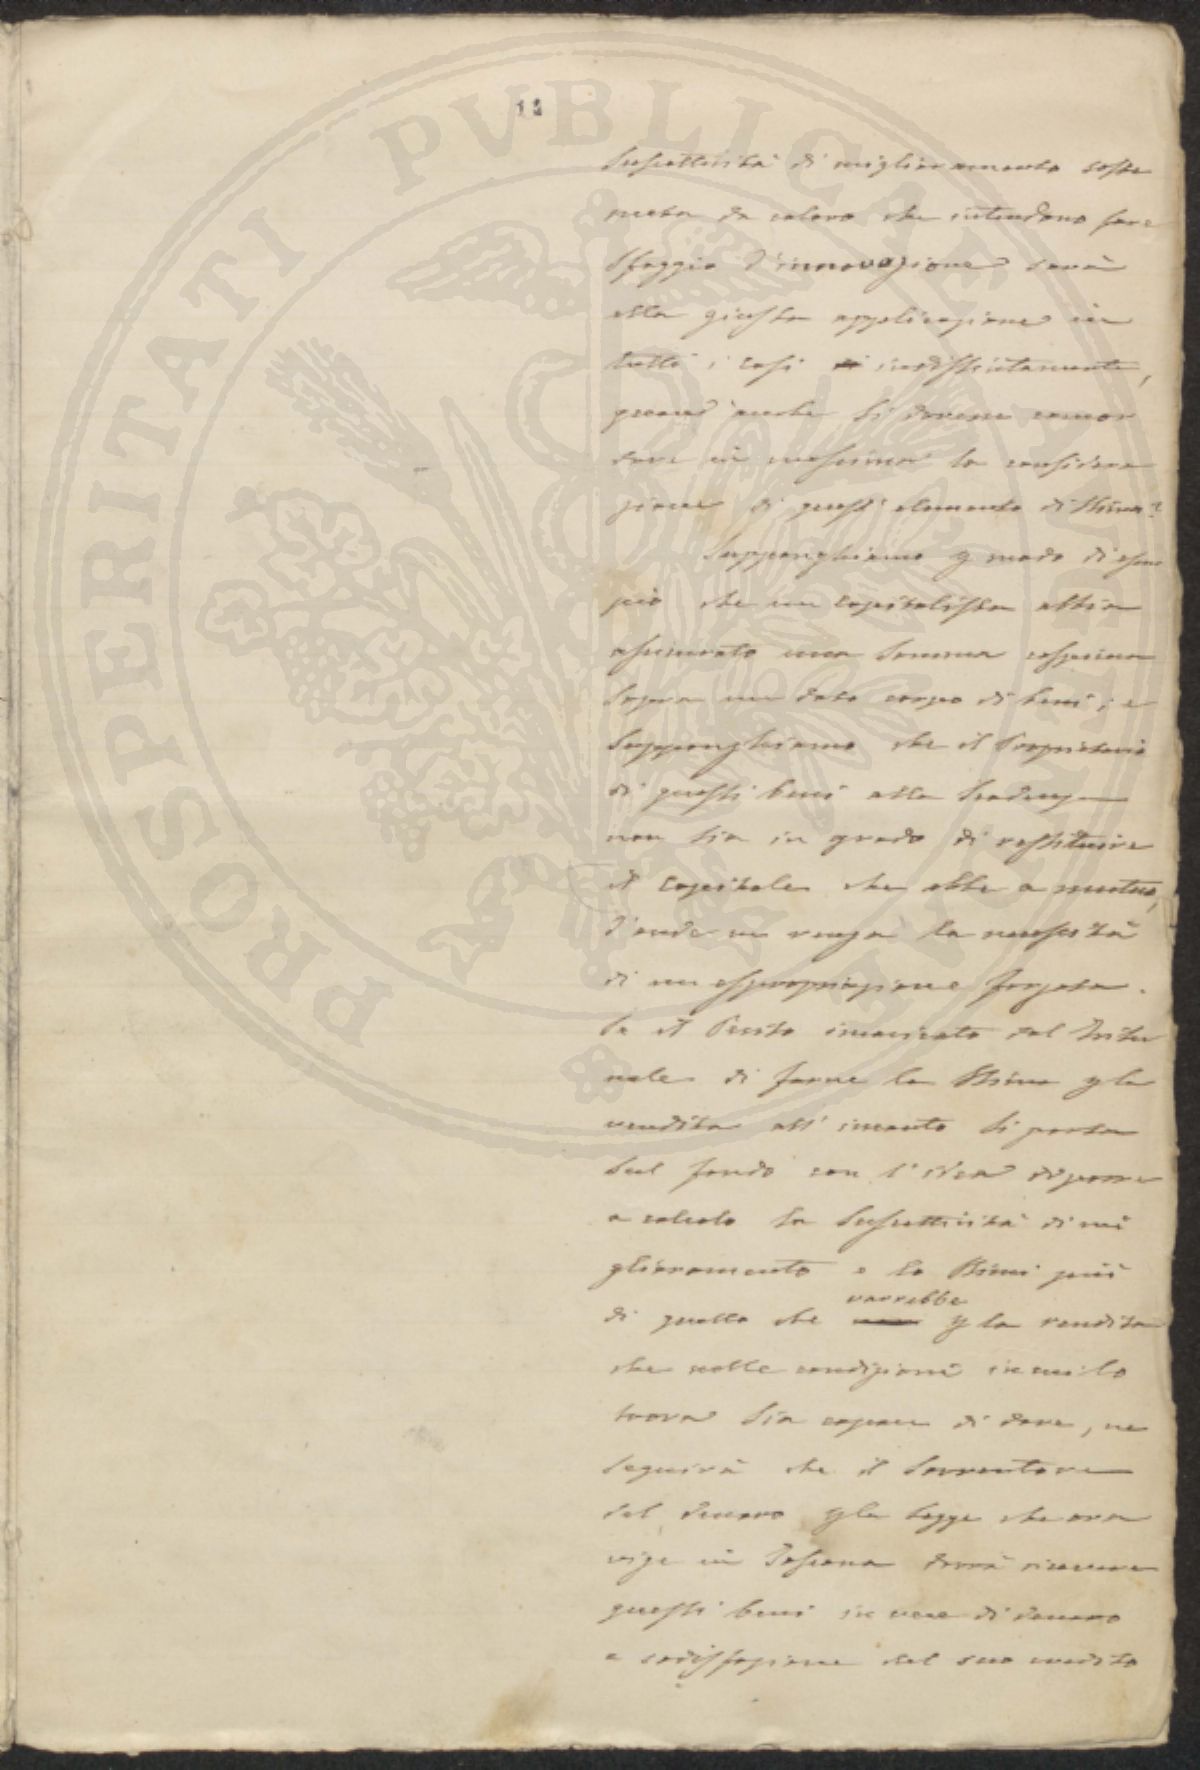 11
suscettività di miglioramento soste
nuta da coloro che intendono fare
sfoggio d'innovazione sarà
ella giusta applicazione in
tutti i casi indistintamente,
quand'anche si dovesse concor
dare in massima la considera
zione di questi elemento di Stima?
Supponghiamo p modo di esem
pio che un capitalista abbia
assicurato una somma cospicua
sopra un dato corpo di beni; e
supponghiamo che il Proprietario
di questi beni alla scadenza
non sia in grado di restituire
il capitale che ebbe a mutuo,
d'onde ne venga la necessità
di un espropriazione forzata.
Se il Perito incaricato dal Tribu
nale di farne la Stima p la
vendita all'incanto si porta
sul fondo con l'idea di porre
a calcolo la suscettività di mi
glioramento e lo Stimi più
di quello che varrebbe p la rendita
che nelle condizioni in cui lo
trova sia capace di dare, ne
seguirà che il Sovventore
del denaro p la legge che ora
vige in Toscana dovrà ricevere
questi beni in vece di denaro
a sodisfazione del suo credito
PROSPERITATI PVBLICAE AVGENDAE